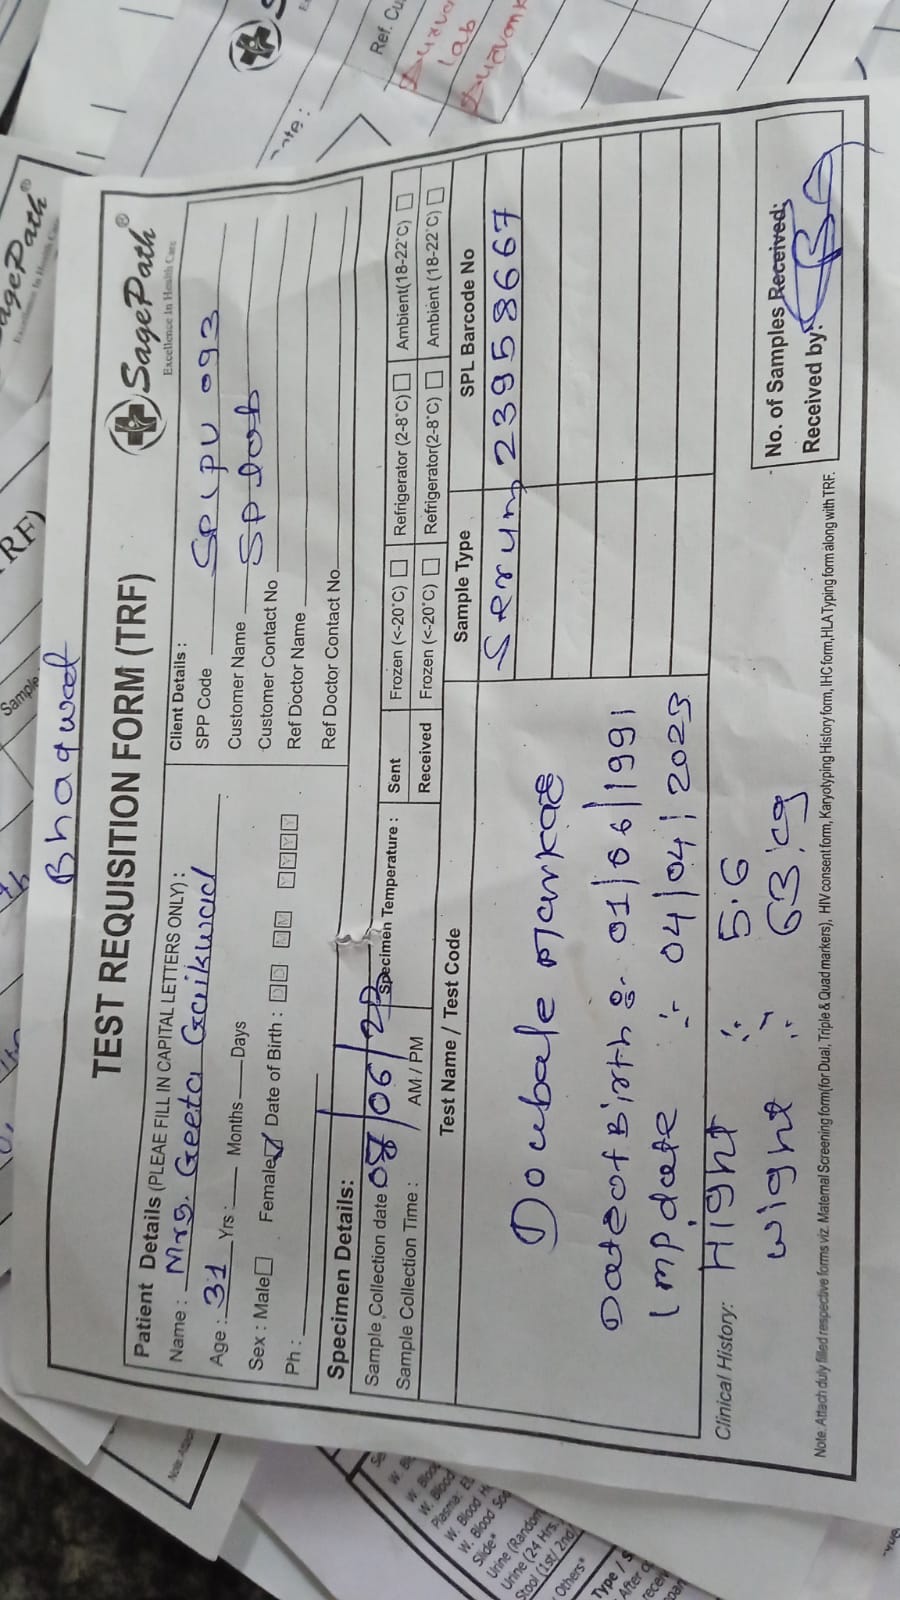 Bhagwat
TEST REQUISITION FORM (TRF)
SagePath®
Excellence In Health Care
Patient Details (PLEAE FILL IN CAPITAL LETTERS ONLY) :
Name : Mrs. Geeta Gaikwad
Age : 31 Yrs : Months Days
Sex : Male Female Date of Birth : D D M M Y Y Y Y
Ph :
Client Details :
SPP Code SPLPU 093
Customer Name SP Lab
Customer Contact No
Ref Doctor Name
Ref Doctor Contact No
Specimen Details:
Sample Collection date 08/06/23
Sample Collection Time : AM / PM
Specimen Temperature :
Sent Frozen (<-20°C) Refrigerator (2-8°C) Ambient (18-22°C)
Received Frozen (<-20°C) Refrigerator (2-8°C) Ambient (18-22°C)
Test Name / Test Code Sample Type SPL Barcode No
Doubale Markae Serum 23958667
Date of Birth :. 01/06/1991
Lmp date :. 04/04/2023
Clinical History: Hight :. 5.6
Wight :. 63.kg
No. of Samples Received:
Received by:
Note: Attach duly filled respective forms viz. Maternal Screening form(for Dual, Triple & Quad markers), HIV consent form, Karyotyping History form, IHC form, HLA Typing form along with TRF.
agePath®
RF)
Sample
Note: Attach
Ref. Cu
Lab
W. Blood
W. Blood
Plasma:
W. Blood
W. Blood
Slide*
Urine (Random
Urine (24 Hrs.
Stool (1st/ 2nd/
Others*
Type / S